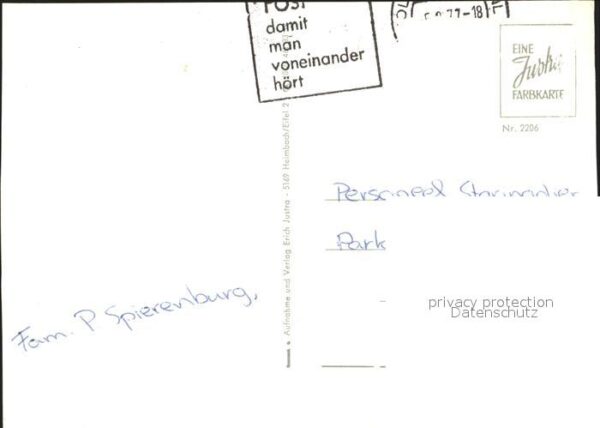 POST
damit
man
voneinander
hört
77-18
EINE
Justra
FARBKARTE
Nr. 2206
Aufnahme und Verlag Erich Justra - 5169 Heimbach/Eifel 2
Personeel
Park
Fam. P Spierenburg,
privacy protection
Datenschutz